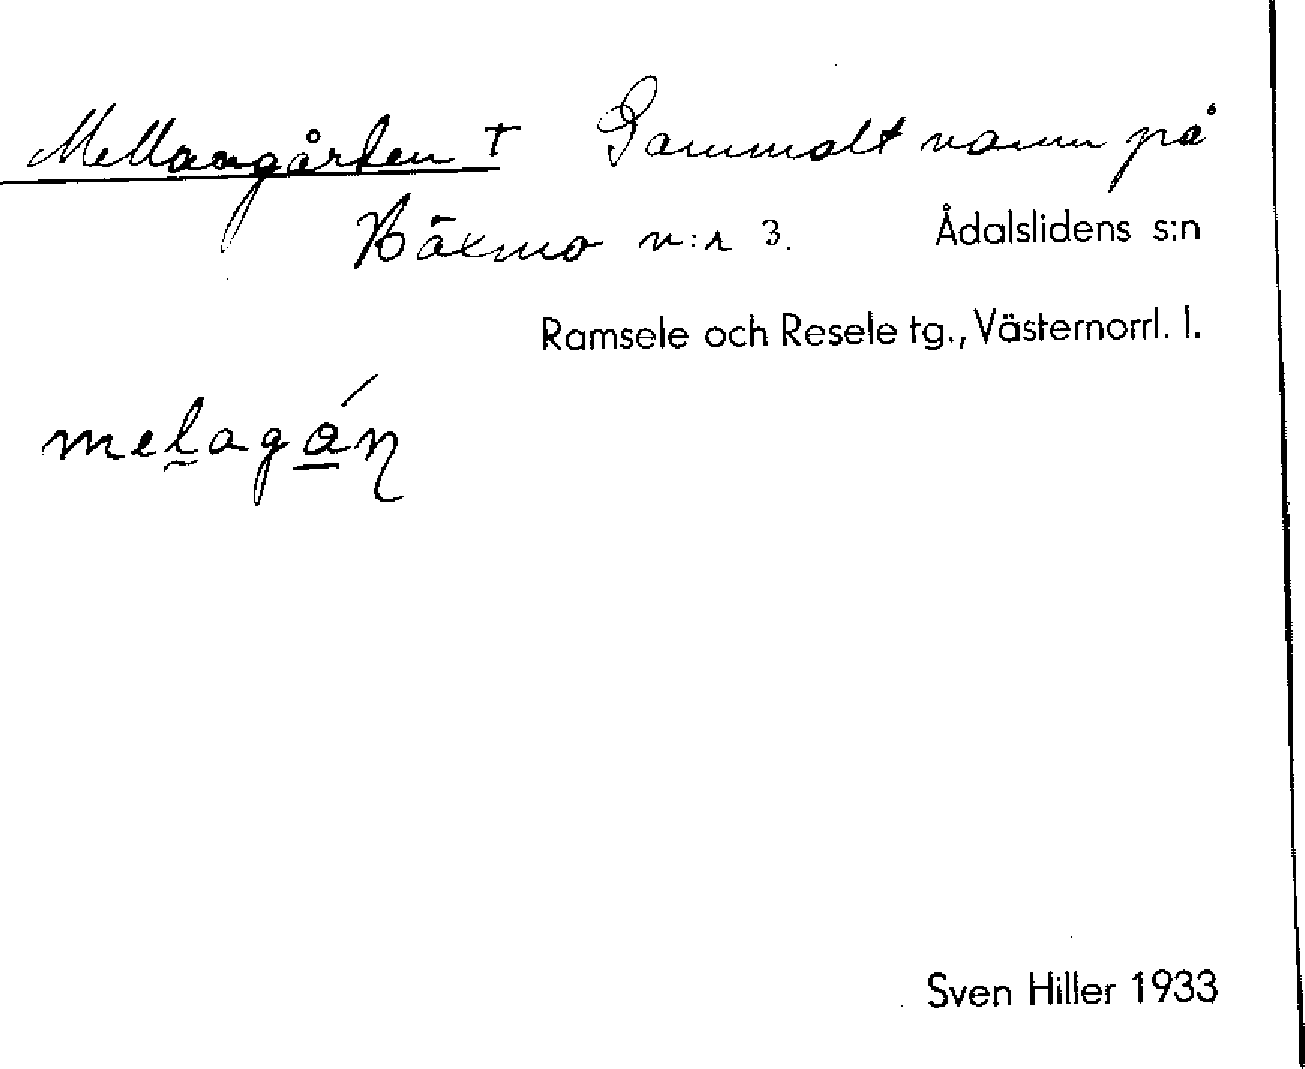 Mellangården † Gammalt namn på
Bäxmo n:r 3. Ådalslidens s:n
Ramsele och Resele tg., Västernorrl. l.
melagán
Sven Hiller 1933